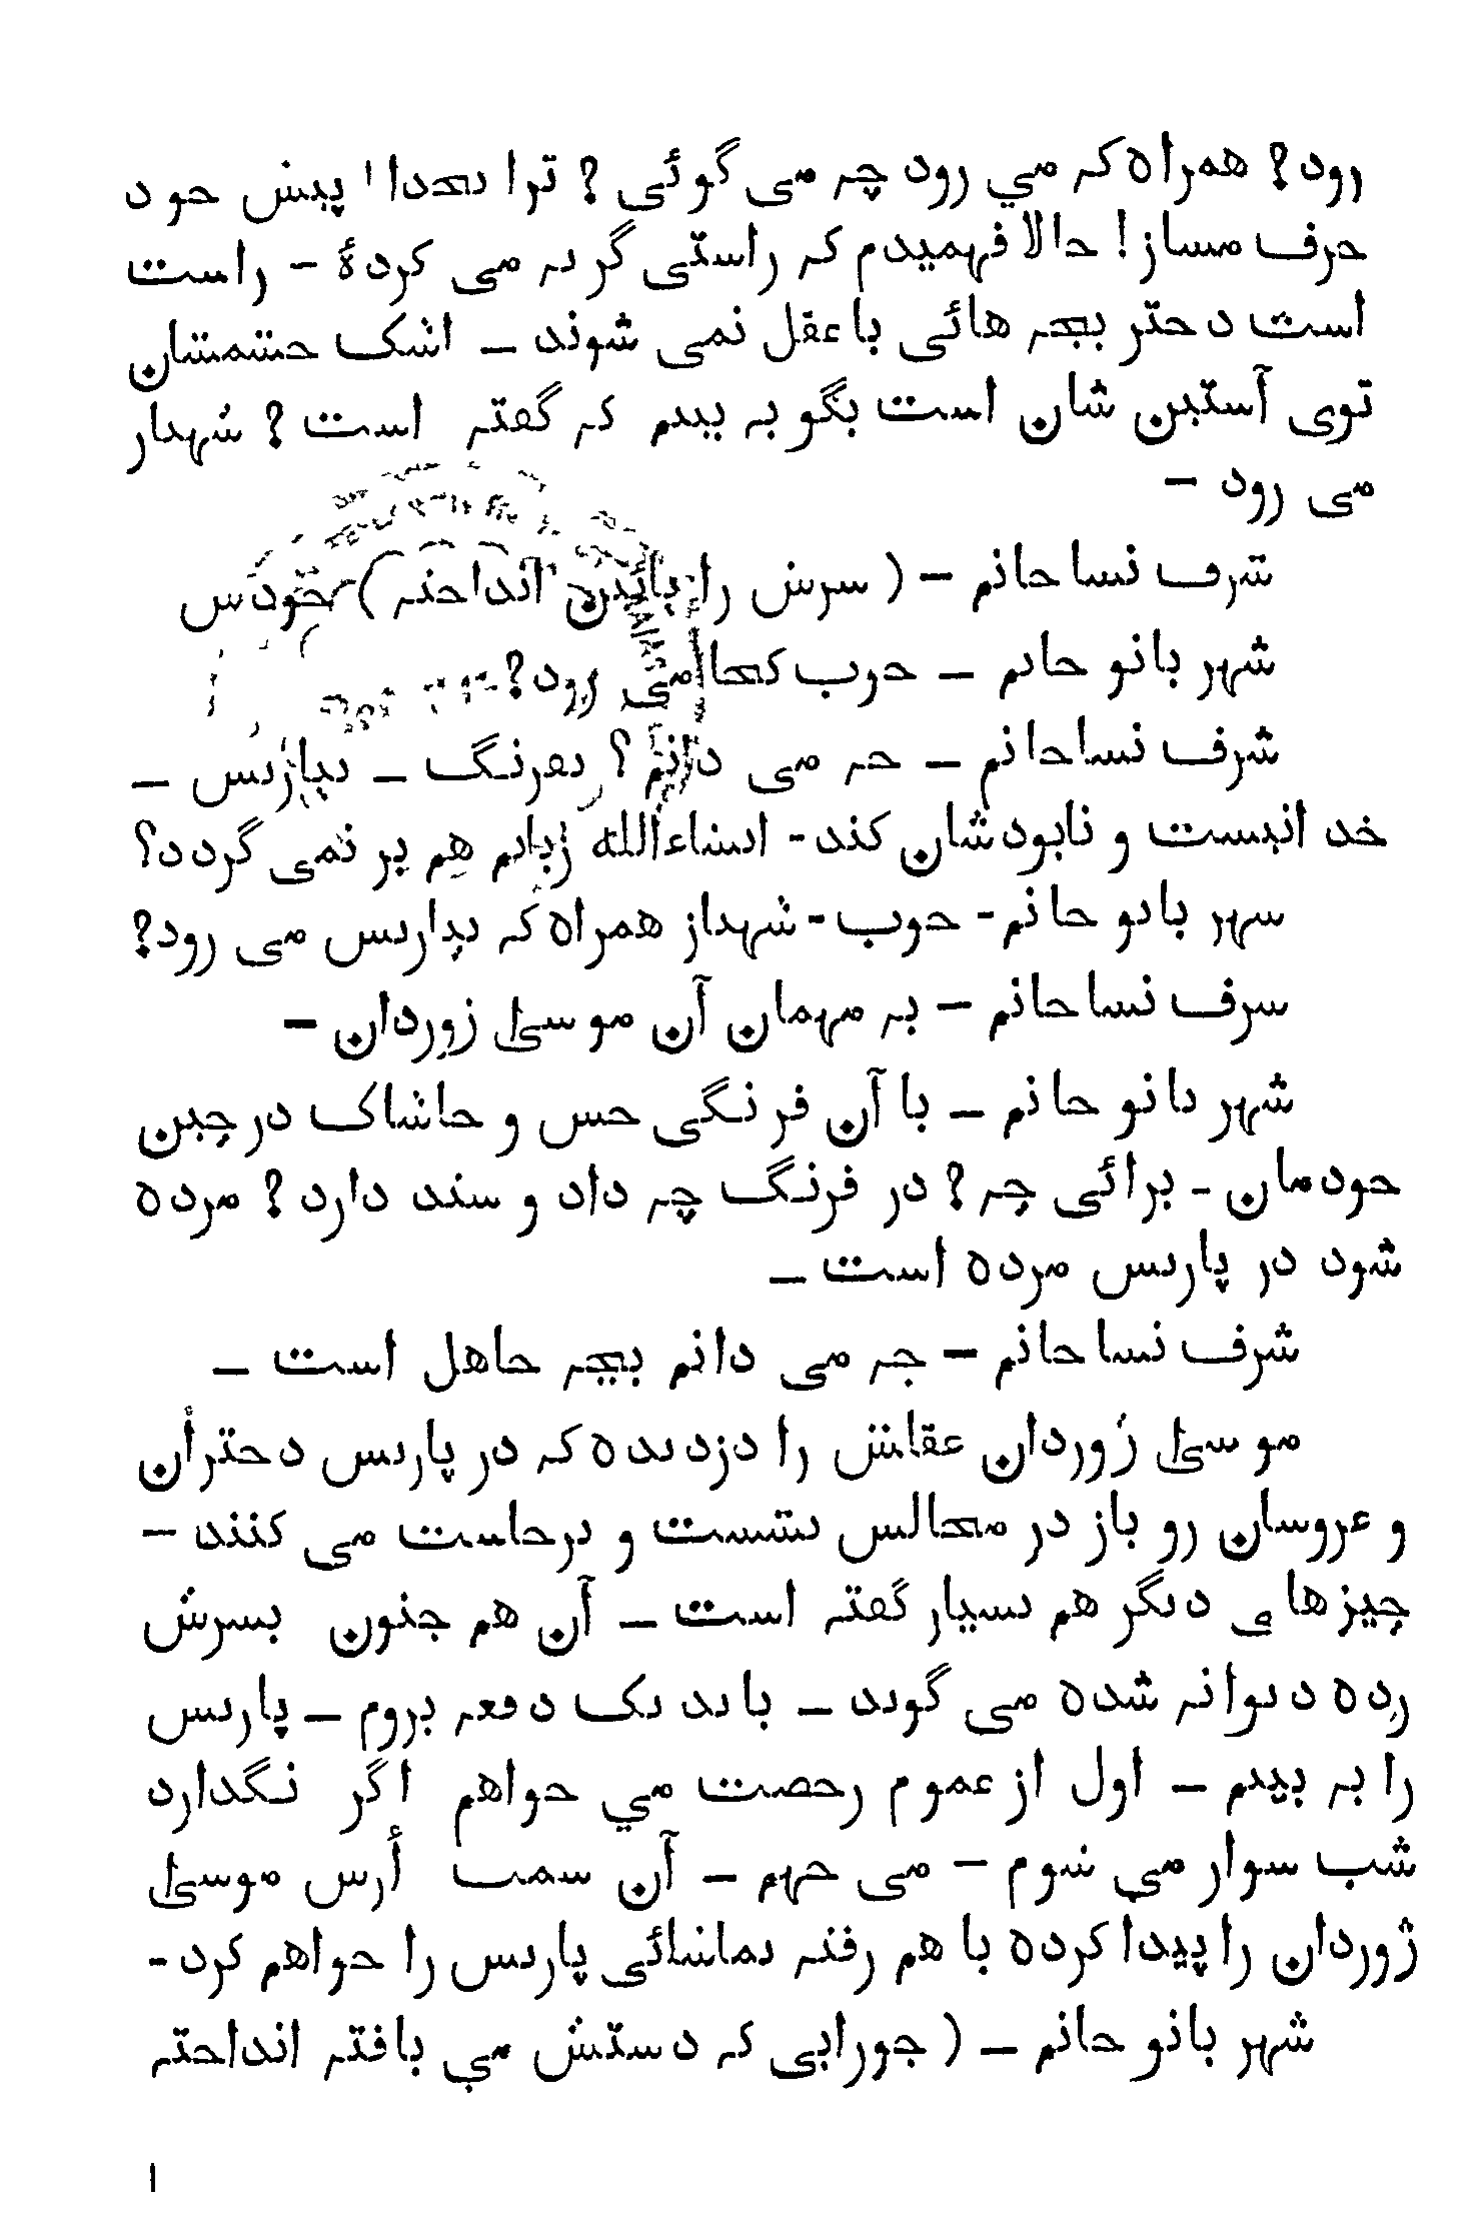 رود؟ همراه که می رود چه می گوئی؟ ترا بخدا پیش خود
حرف مساز! حالا فهمیدم که راستی گریه می کردهٔ - راست
است دختر بچه هائی با عقل نمی شوند — اشک چشمشان
توی آستین شان است بگو به بینم که گفته است؟ شهباز
می رود —
شرف نسا خانم — (سرش را پائین انداخته) خودش
شهر بانو خانم — خوب کجا می رود؟
شرف نسا خانم — چه می دانم؟ بفرنگ — بپاریس —
خدا نیست و نابودشان کند - انشاءالله زبانم هم بر نمی گردد؟
شهر بانو خانم - خوب - شهباز همراه که بپاریس می رود؟
شرف نسا خانم — به مهمان آن موسیٰ ژوردان —
شهر بانو خانم — با آن فرنگی خس و خاشاک در چین
خودمان - برائی چه؟ در فرنگ چه داد و ستد دارد؟ مرده
شود در پاریس مرده است —
شرف نسا خانم — چه می دانم بچه جاهل است —
موسیٰ ژوردان عقلش را دزدیده که در پاریس دختران
و عروسان رو باز در مجالس نشست و برخاست می کنند —
چیزهای دیگر هم بسیار گفته است — آن هم جنون بسرش
زده دیوانه شده می گوید — باید یک دفعه بروم — پاریس
را به بینم — اول از عموم رخصت می خواهم اگر نگذارد
شب سوار می شوم — می جهم — آن سمت أرس موسیٰ
ژوردان را پیدا کرده با هم رفته تماشائی پاریس را خواهم کرد -
شهر بانو خانم — (جورابی که دستش می بافته انداخته
ا